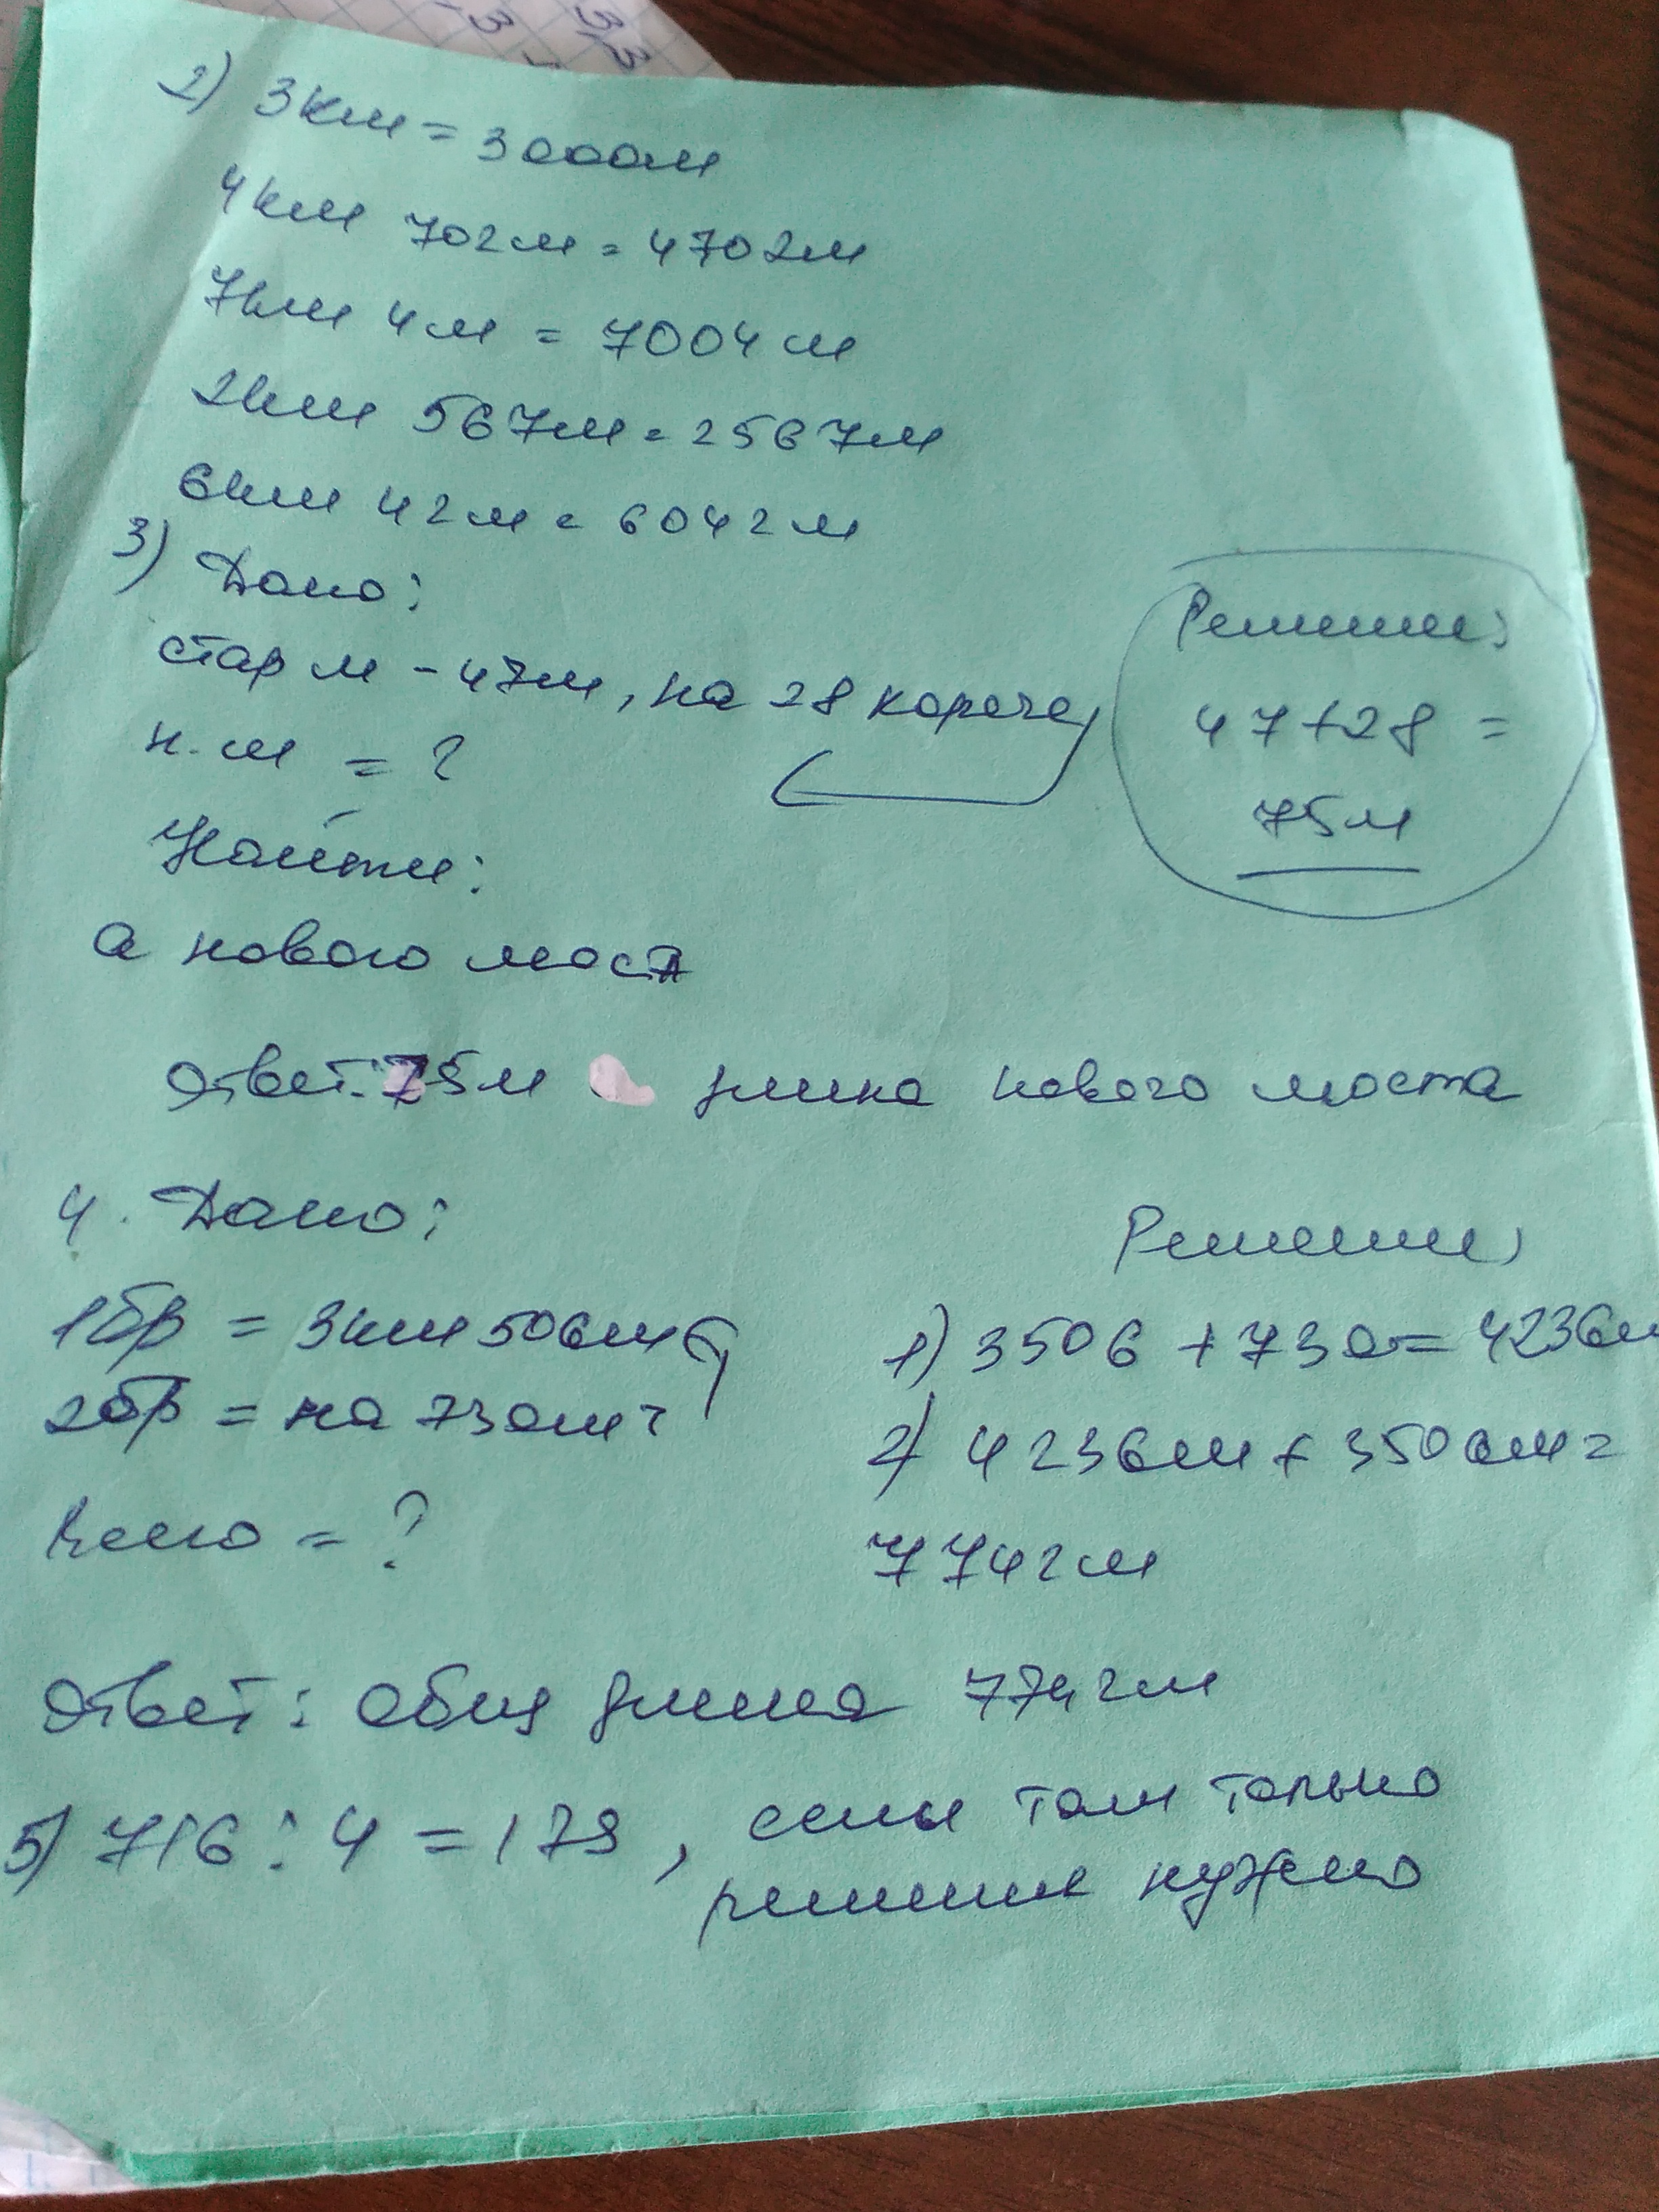 2) 3км = 3000м
4км 702м = 4702м
7км 4м = 7004м
2км 567м = 2567м
6км 42м = 6042м
3) Дано:
стар м - 47м, на 28 короче,
н. м = ?
Найти:
а нового моста
Решение:
47+28 =
75м
Ответ: 75м длина нового моста
4. Дано:
1бр = 3км 506м
2бр = на 730м
Всего = ?
Решение
1) 3506 + 730 = 4236м
2) 4236м + 3506м =
7742м
Ответ: общ длина 7742м
5) 716 : 4 = 179, если там только
решение нужно